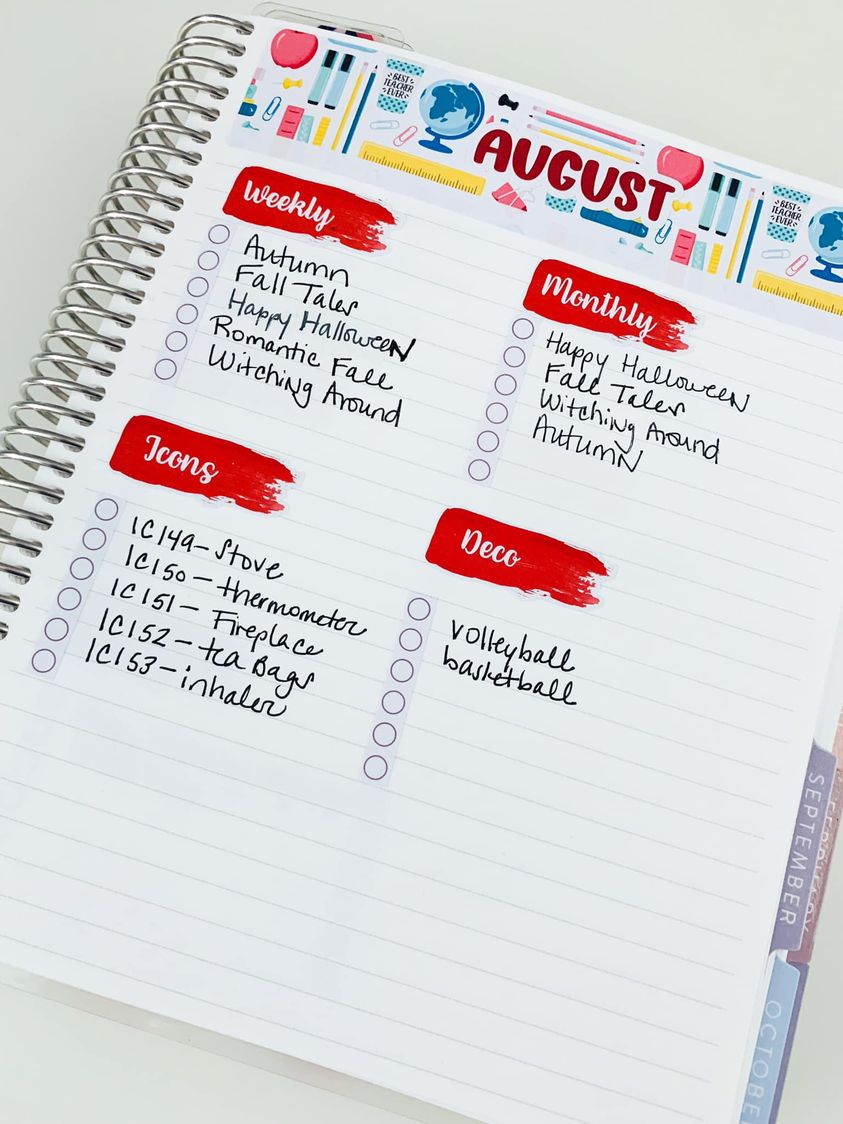 BEST
TEACHER
EVER
AUGUST
BEST
TEACHER
EVER
Weekly
Autumn
Fall Tales
Happy Halloween
Romantic Fall
Witching Around
Monthly
Happy Halloween
Fall Tales
Witching Around
Autumn
Icons
IC149 - Stove
IC150 - thermometer
IC151 - Fireplace
IC152 - tea Bags
IC153 - inhaler
Deco
volleyball
basketball
SEPTEMBER
FEBRUARY
OCTOBE